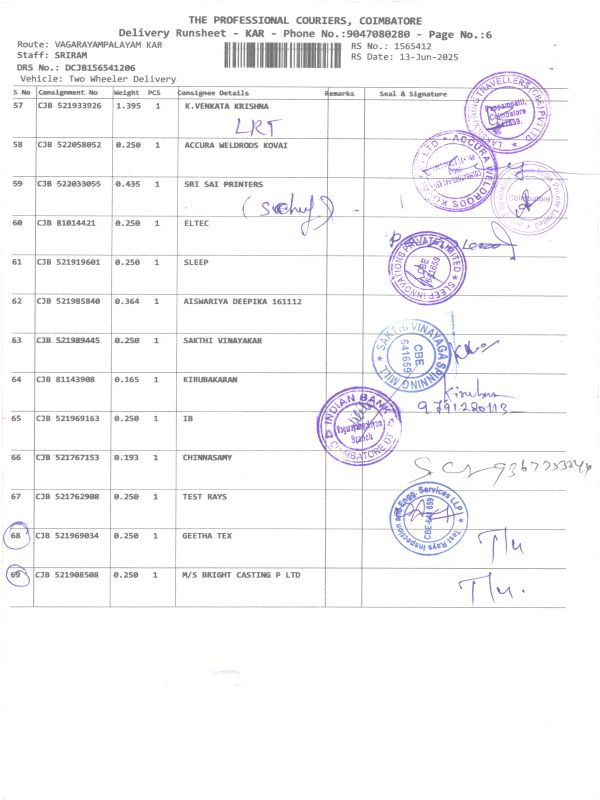 THE PROFESSIONAL COURIERS, COIMBATORE
Delivery Runsheet - KAR - Phone No.:9047080280 - Page No.:6
Route: VAGARAYAMPALAYAM KAR RS No.: 1565412
Staff: SRIRAM RS Date: 13-Jun-2025
DRS No.: DCJB156541206
Vehicle: Two Wheeler Delivery
S No Consignment No Weight PCS Consignee Details Remarks Seal & Signature
57 CJB 521933926 1.395 1 K.VENKATA KRISHNA
LRT
58 CJB 522058052 0.250 1 ACCURA WELDRODS KOVAI
59 CJB 522033055 0.435 1 SRI SAI PRINTERS
60 CJB 81014421 0.250 1 ELTEC
61 CJB 521919601 0.250 1 SLEEP
SLEEP INNOVATIONS PRIVATE LIMITED
CBE
641659
62 CJB 521985840 0.364 1 AISWARIYA DEEPIKA 161112
63 CJB 521989445 0.250 1 SAKTHI VINAYAKAR
SAKTHI VINAYAGA SPINNING MILL
CBE
641659
64 CJB 81143908 0.165 1 KIRUBAKARAN
65 CJB 521969163 0.250 1 IB
INDIAN BANK
Branch
66 CJB 521767153 0.193 1 CHINNASAMY
67 CJB 521762908 0.250 1 TEST RAYS
Test Rays Inspection and Engg. Services LLP
CBE-641 659
68 CJB 521969034 0.250 1 GEETHA TEX
69 CJB 521908508 0.250 1 M/S BRIGHT CASTING P LTD